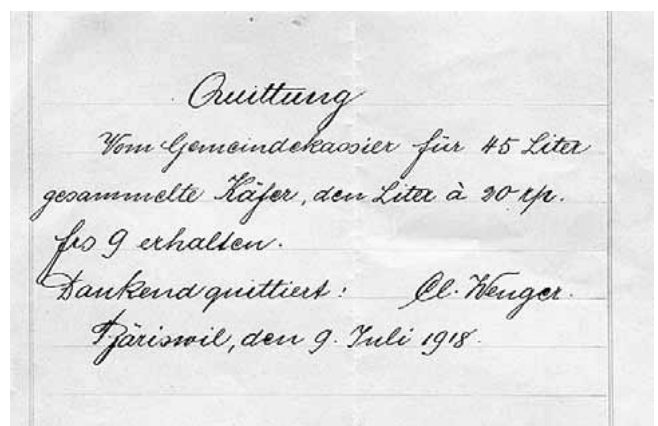 Quittung
Vom Gemeindekassier für 45 Liter
gesammelte Käfer, den Liter à 20 rp.
frs 9 erhalten.
Dankend quittiert: Cl. Wenger.
Bäriswil, den 9. Juli 1918.